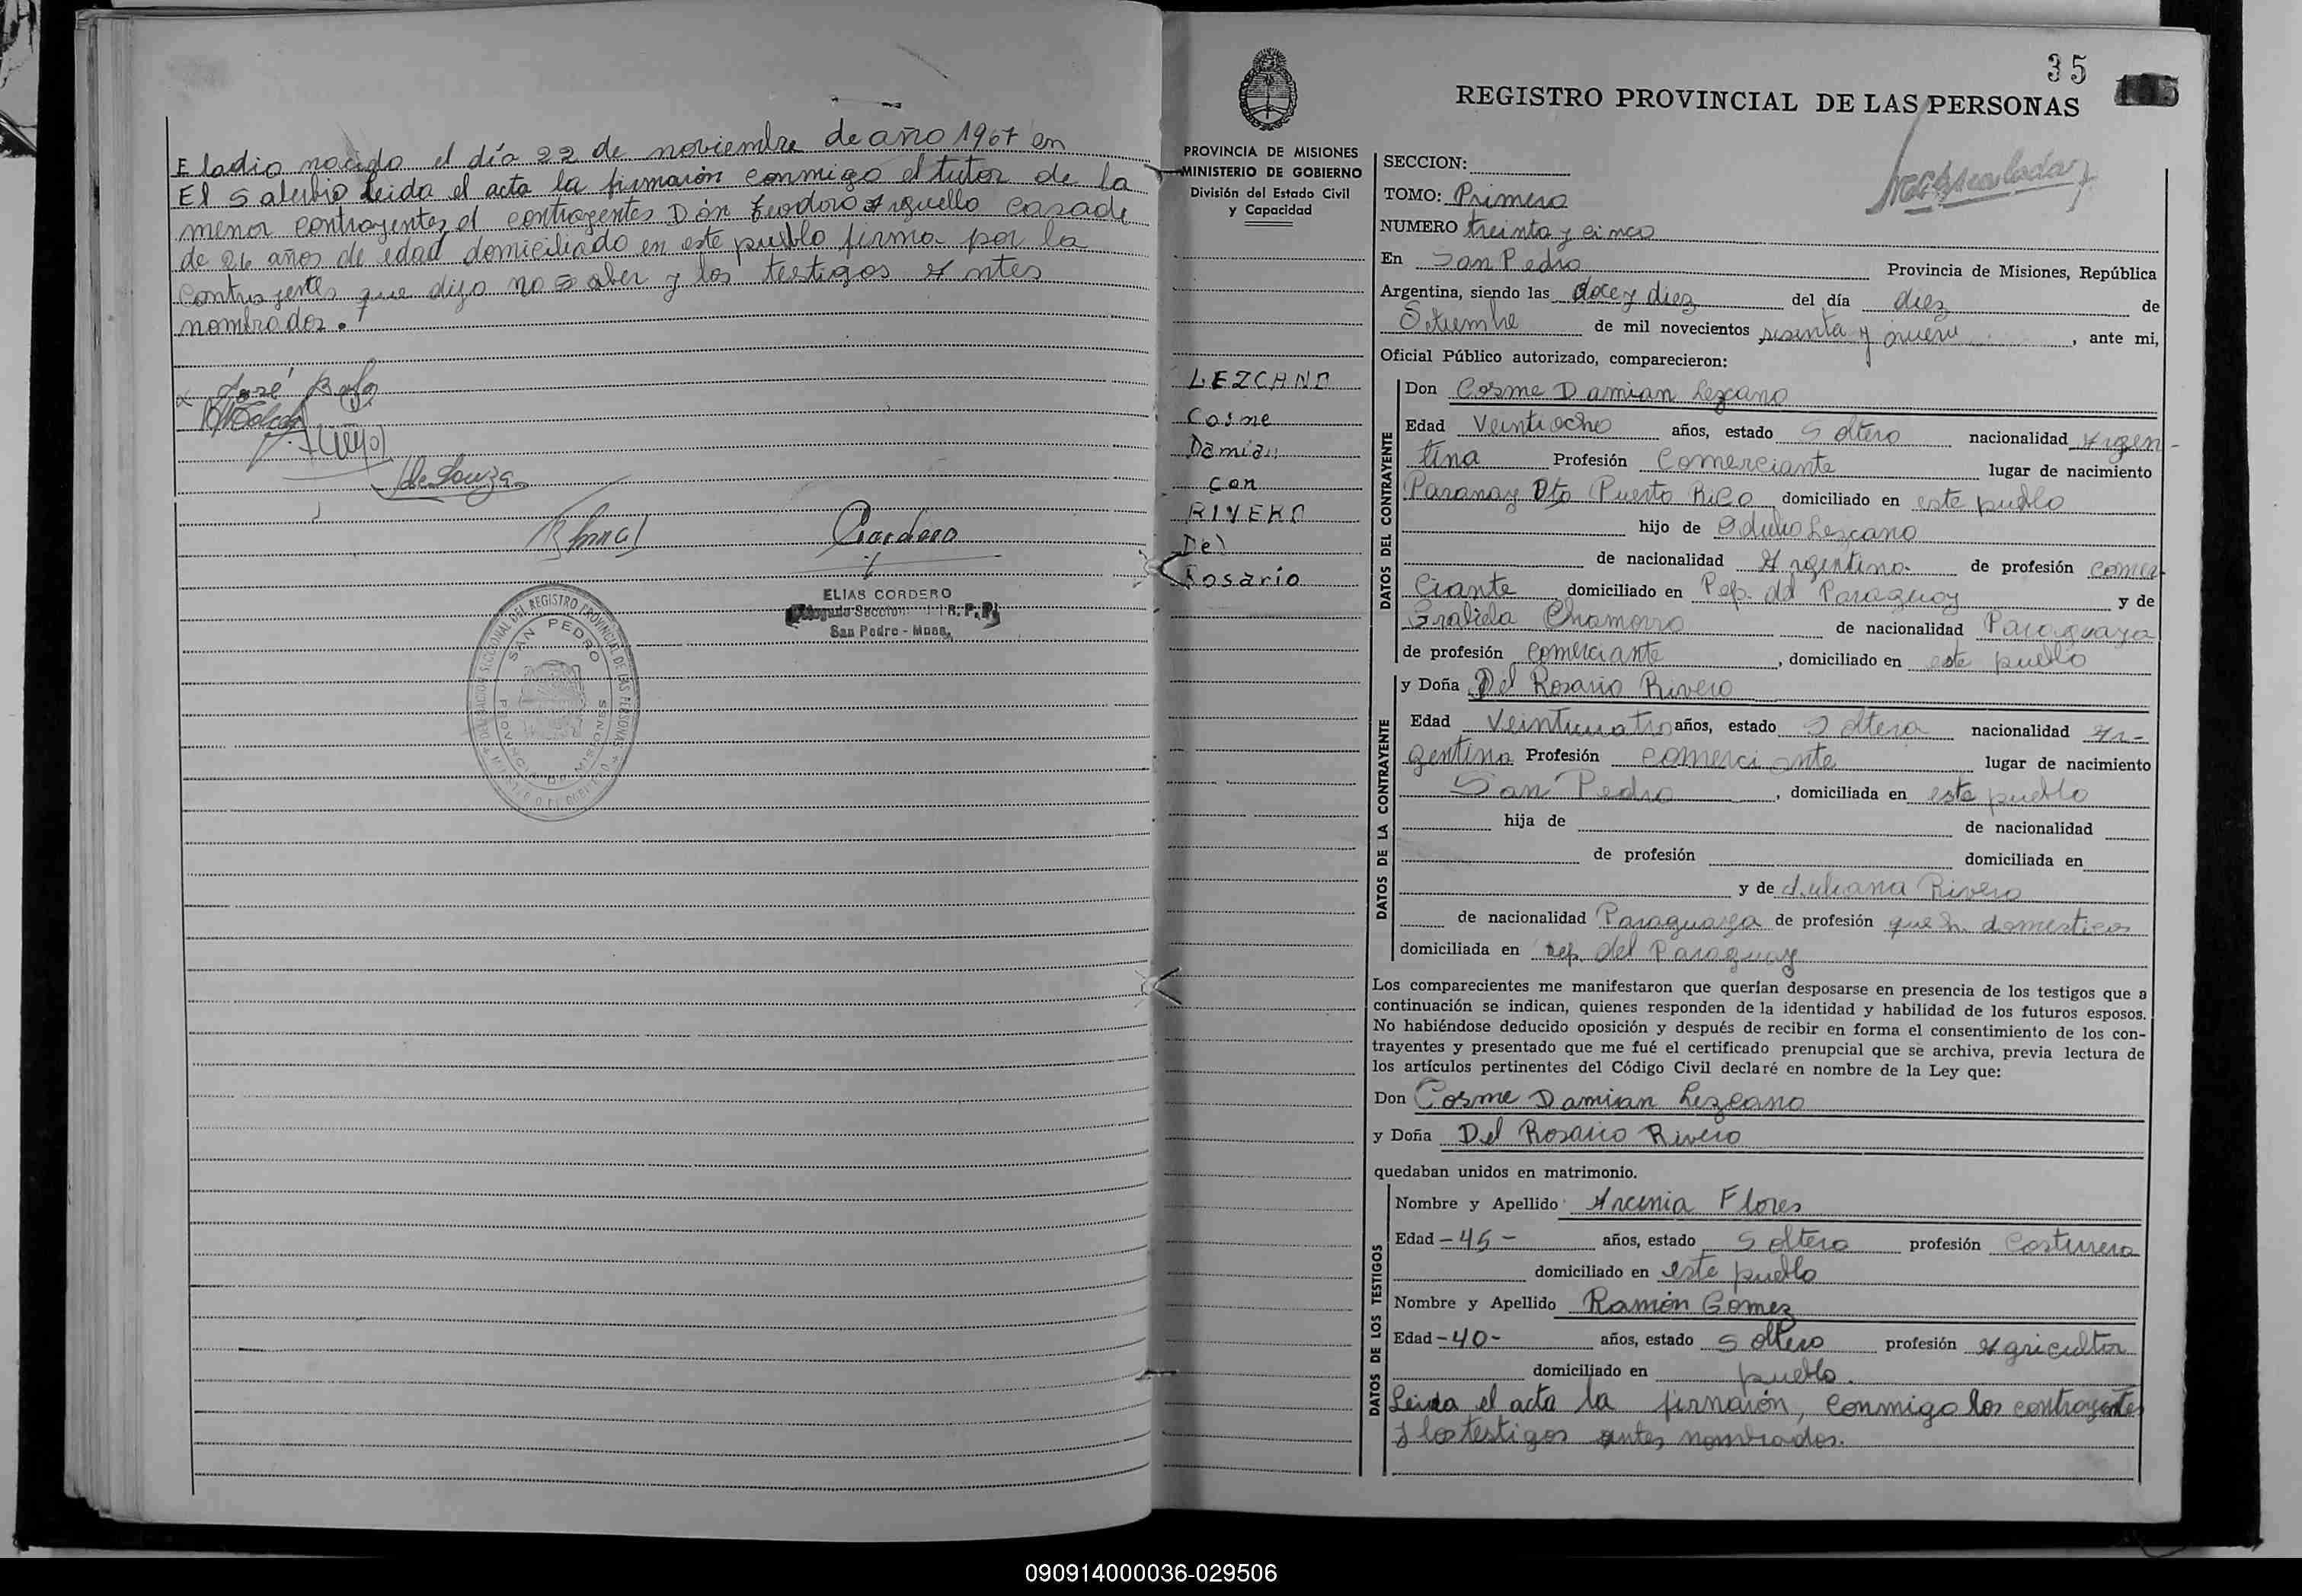 Eladio nacido el día 22 de noviembre de año 1967 en
El Saltubio leida el acta la firmaron conmigo el tutor de la
menor contrayentes el contrayentes Don Teodoro Arguello casado
de 26 años de edad domiciliado en este pueblo firma por la
contrayentes que dijo no saber y los testigos Antes
nombrados.
José
de Souza
Cordero
ELIAS CORDERO
San Pedro - Mnes.
SAN PEDRO
PROVINCIA DE MISIONES
35
REGISTRO PROVINCIAL DE LAS PERSONAS
PROVINCIA DE MISIONES
MINISTERIO DE GOBIERNO
División del Estado Civil
y Capacidad
LEZCANO
Cosme
Damian
con
RIVERO
Del
Rosario
SECCION:
TOMO: Primero
NUMERO treinta y cinco
En San Pedro Provincia de Misiones, República
Argentina, siendo las doce y diez del día diez de
Setiembre de mil novecientos sesenta y nueve, ante mi,
Oficial Público autorizado, comparecieron:
DATOS DEL CONTRAYENTE
Don Cosme Damian Lezcano
Edad Veintiocho años, estado Soltero nacionalidad Argen-
tina Profesión Comerciante lugar de nacimiento
Paranay Dto Puerto Rico domiciliado en este pueblo
hijo de Odulio Lezcano
de nacionalidad Argentina de profesión comer-
ciante domiciliado en Rep. del Paraguay y de
Grabiela Chamorro de nacionalidad Paraguaya
de profesión comerciante, domiciliado en este pueblo
DATOS DE LA CONTRAYENTE
y Doña Del Rosario Rivero
Edad Veinticuatro años, estado Soltera nacionalidad Ar-
gentina Profesión comerciante lugar de nacimiento
San Pedro, domiciliada en este pueblo
hija de de nacionalidad
de profesión domiciliada en
y de Juliana Rivero
de nacionalidad Paraguaya de profesión queh. domesticos
domiciliada en Rep. del Paraguay
Los comparecientes me manifestaron que querían desposarse en presencia de los testigos que a
continuación se indican, quienes responden de la identidad y habilidad de los futuros esposos.
No habiéndose deducido oposición y después de recibir en forma el consentimiento de los con-
trayentes y presentado que me fué el certificado prenupcial que se archiva, previa lectura de
los artículos pertinentes del Código Civil declaré en nombre de la Ley que:
Don Cosme Damian Lezcano
y Doña Del Rosario Rivero
quedaban unidos en matrimonio.
DATOS DE LOS TESTIGOS
Nombre y Apellido Arcenia Flores
Edad -45- años, estado Soltera profesión Costurera
domiciliado en este pueblo
Nombre y Apellido Ramón Gomez
Edad -40- años, estado Soltero profesión Agricultor
domiciliado en pueblo.
Leida el acta la firmaron, conmigo los contrayentes
y los testigos antes nombrados.
090914000036-029506